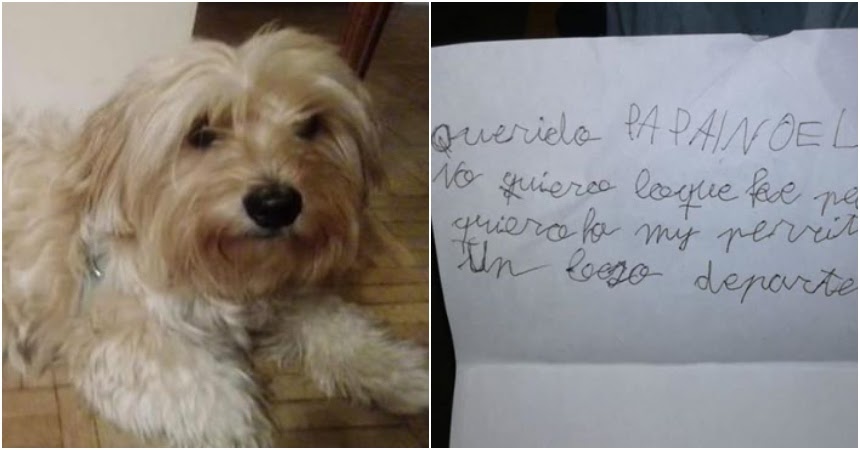 Querido PAPAINOEL
No quiero loque fae pe
quiero ha my perrit
Un beso departe